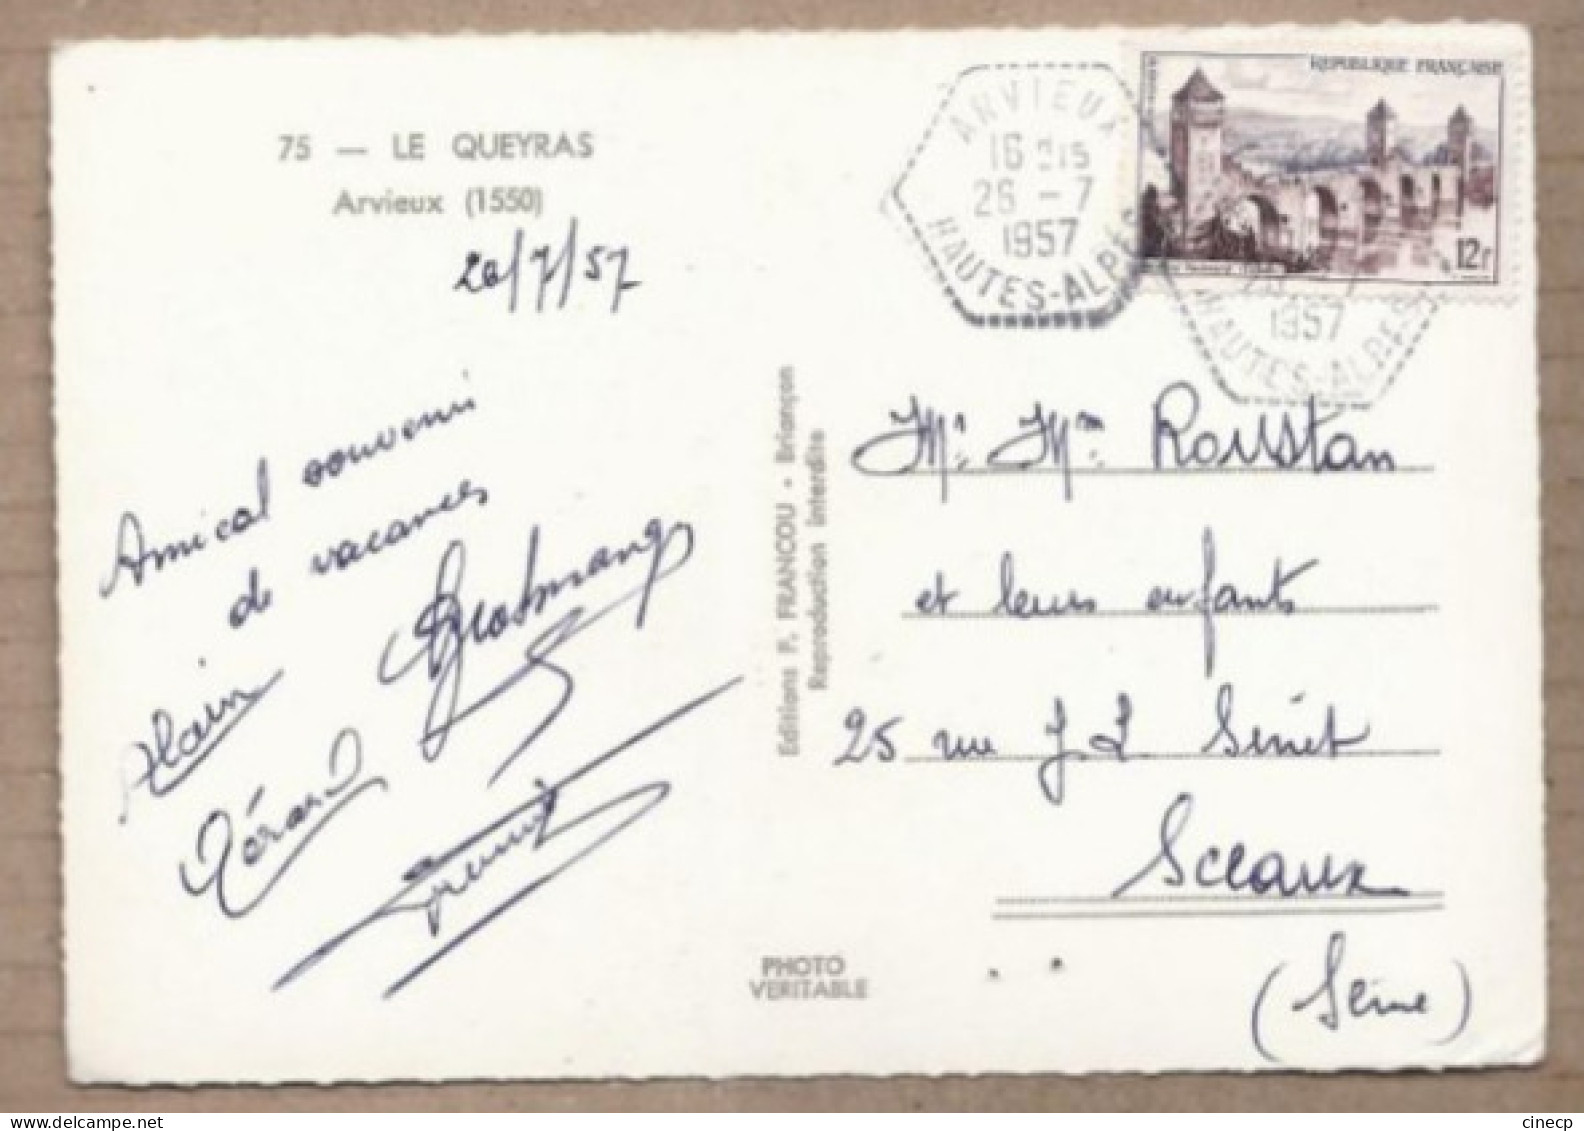 75 — LE QUEYRAS
Arvieux (1550)
26/7/57
Amical souvenir
de vacances
Alain
Gérard
Editions F. FRANCOU - Briançon
Reproduction interdite
PHOTO
VERITABLE
ARVIEUX
16 H15
26 -7
1957
HAUTES-ALPES
REPUBLIQUE FRANÇAISE
12F
1957
HAUTES-ALPES
Mr. Mme Roustan
et leurs enfants
25 rue J. L. Sinet
Sceaux
(Seine)
cinecp